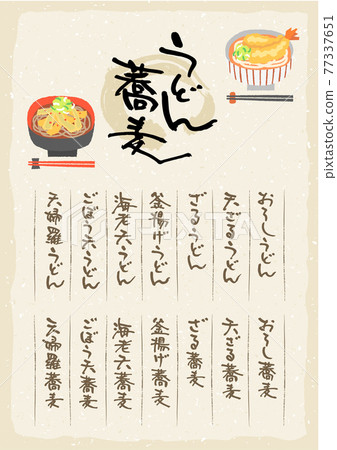 うどん
蕎麦
おろしうどん
天ざるうどん
ざるうどん
釜揚げうどん
海老天うどん
ごぼう天うどん
天婦羅うどん
おろし蕎麦
天ざる蕎麦
ざる蕎麦
釜揚げ蕎麦
海老天蕎麦
ごぼう天蕎麦
天婦羅蕎麦
PIXTA
pixta.jp - 77337651